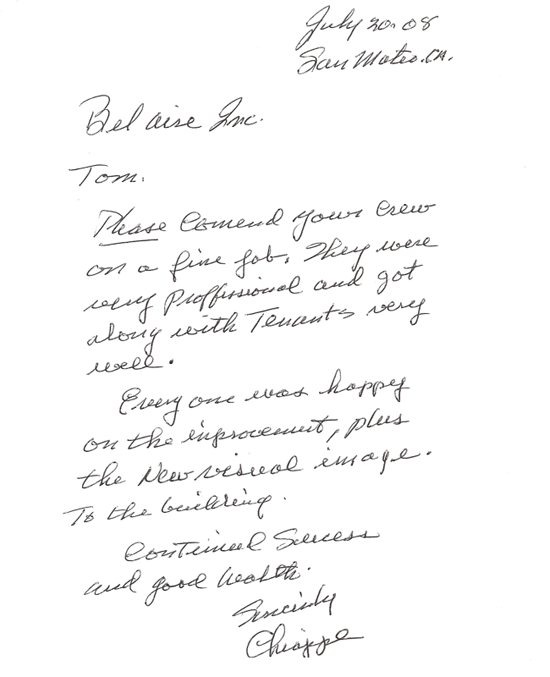 July 20-08
San Mateo. CA.
Bel aire Inc.
Tom.
Please Comend your Crew
on a fine job. They were
very Proffissional and got
along with Tenants very
well.
Every one was happy
on the improvement, plus
the New visual image.
To the building.
Continued Success
and good health.
Sincerely
Chiappe